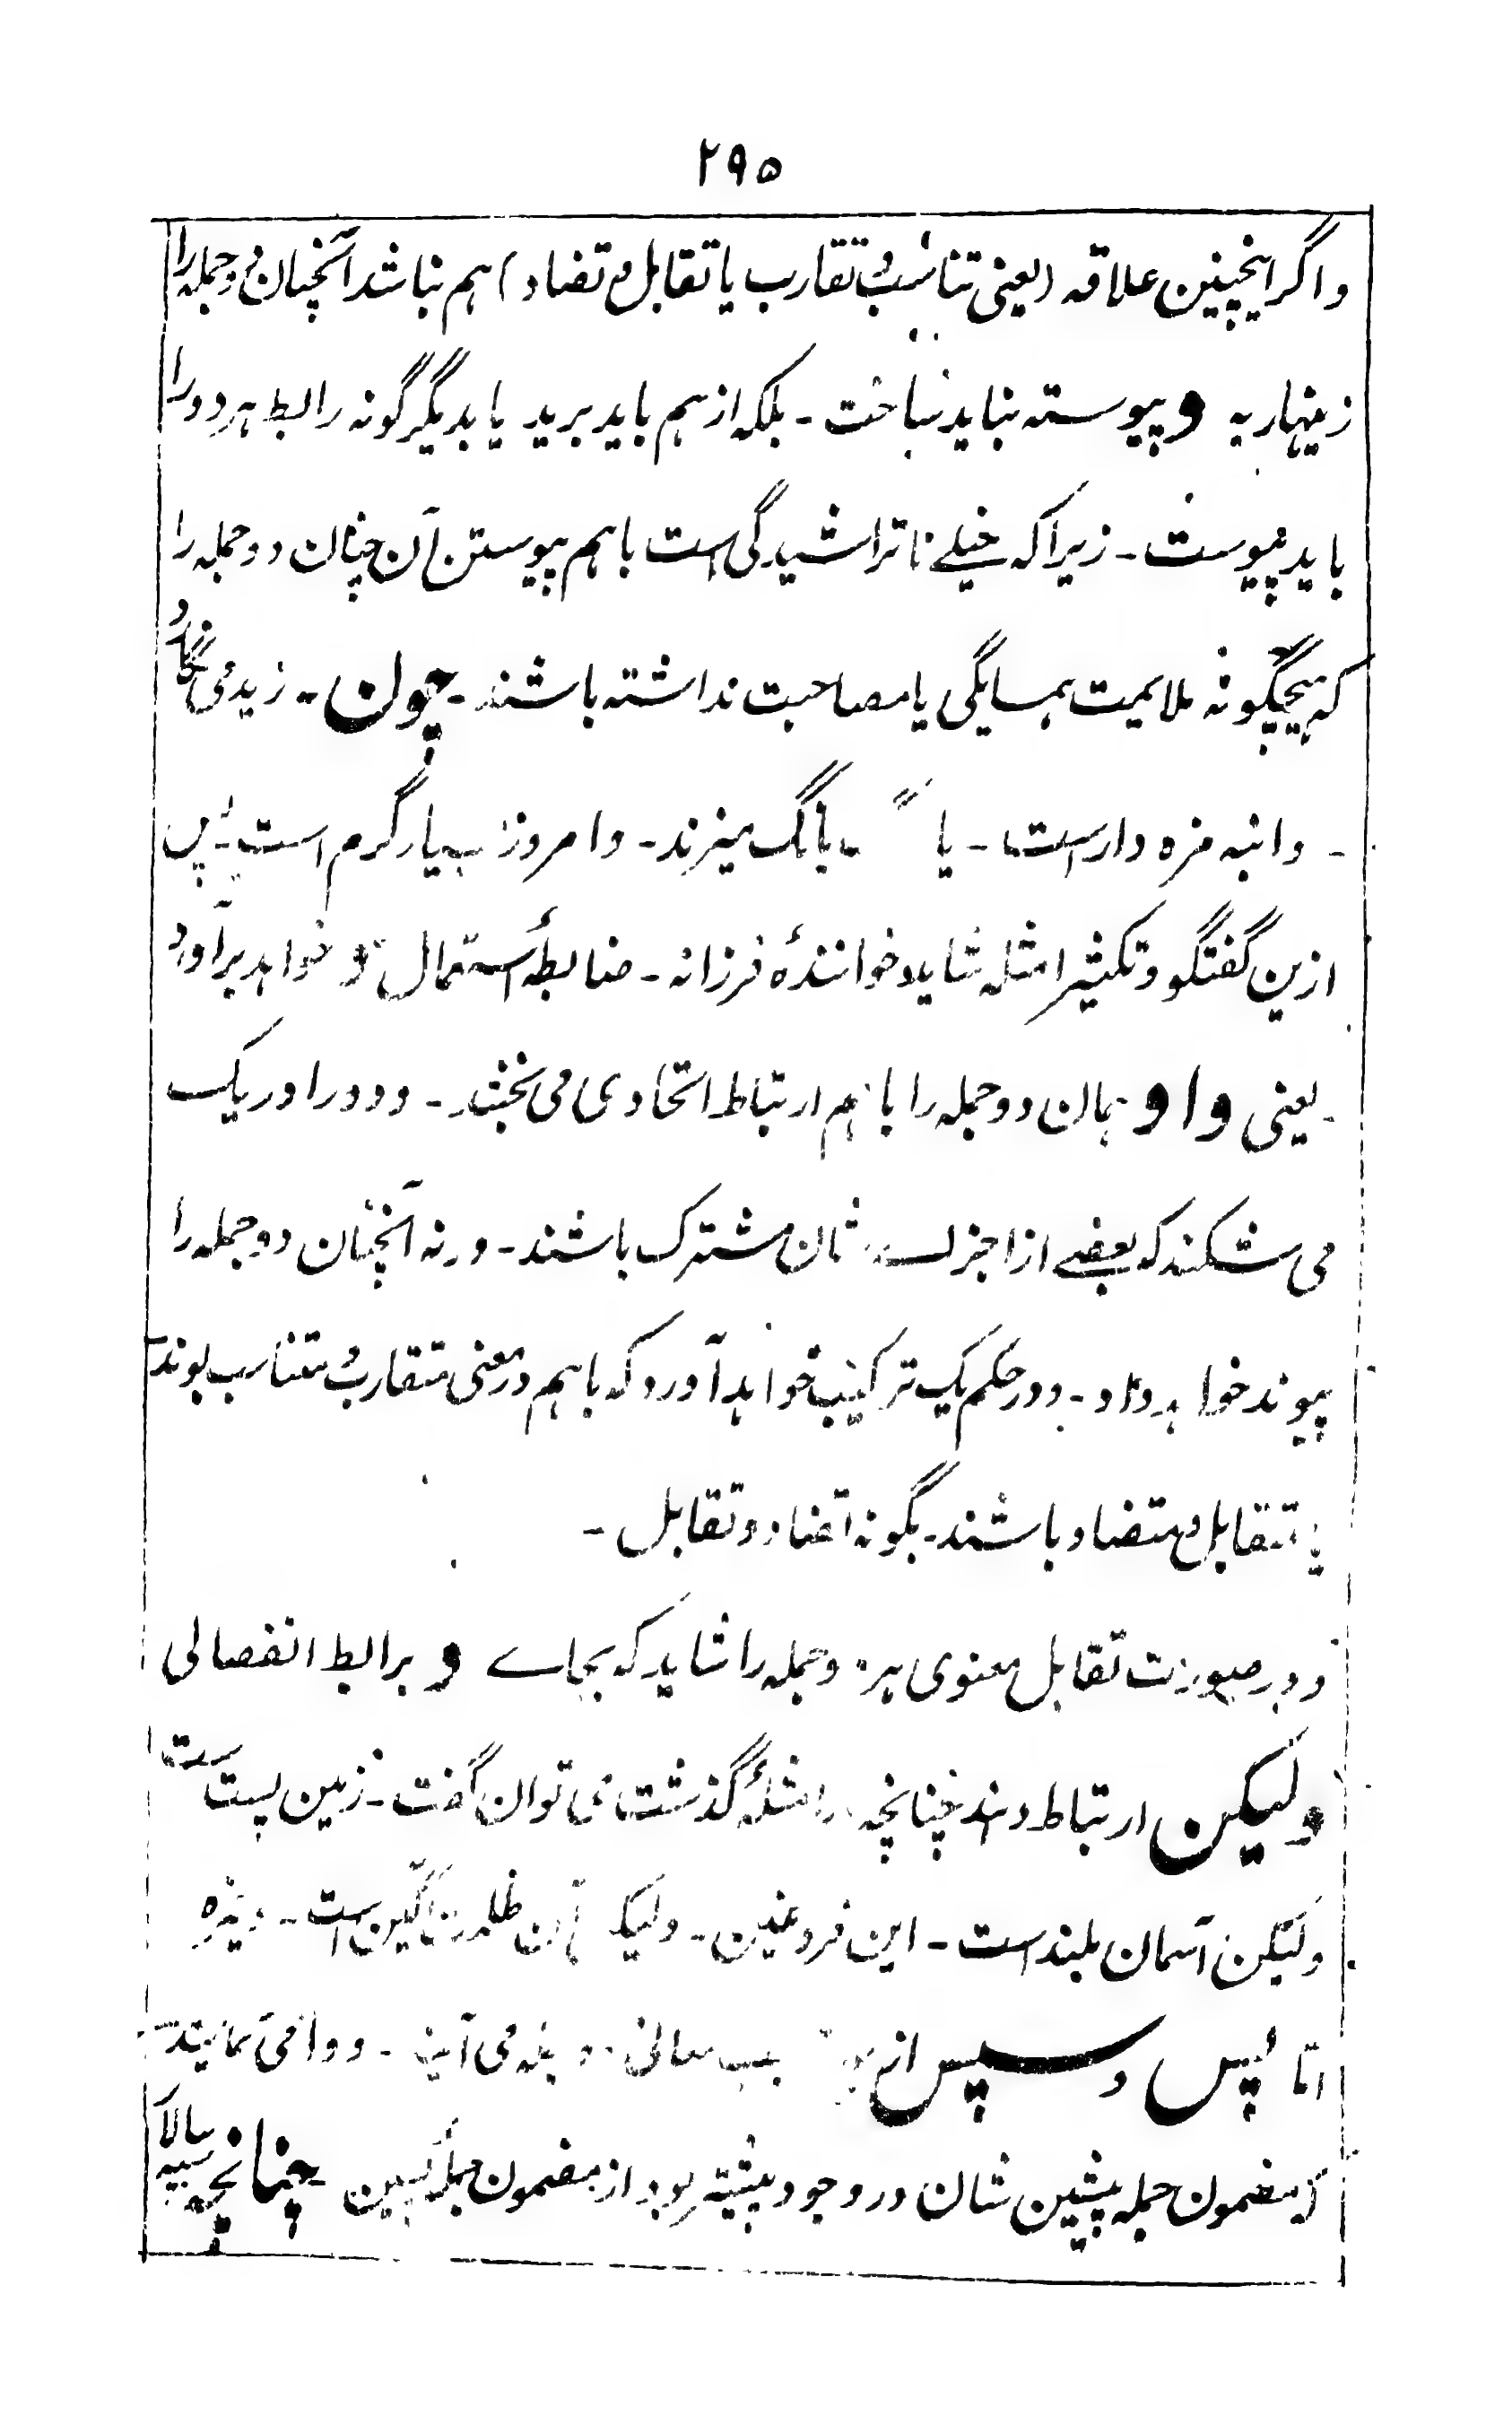 ۲۹۵
و اگر اینچنین علاقه (یعنی تناسب و تقارب یا تقابل و تضاد) هم نباشد آنچنان دو جمله را
زینهار به و پیوسته نباید ساخت - بلکه از هم باید برید یا بدیگر گونه رابط هر دو را
باید پیوست - زیرا که خیلے ناتراشیدگی است باهم پیوستن آن چنان دو جمله را
که هیچگونه ملایمت همسایگی یا مصاحبت نداشته باشند - چون - زید می نگارد
- و انبه مزه دار است - یا بانگ میزند - و امروز بسیار گرم است - پس
ازین گفتگو و تکثیر امثله شاید خوانندهٔ فرزانه - ضابطهٔ استعمال و خواهد برآورد
- یعنی واو همان دو جمله را باهم ارتباط اتحادی می بخشد - و دو را در یک
می شکند که بعضے از اجزاے شان مشترک باشند - ورنه آنچنان دو جمله را
پیوند خواهد داد - و در حکم یک ترکیب خواهد آورد که باهم در معنی متقارب و متناسب بوند
یا متقابل و متضاد باشند - بگونه تضاد و تقابل -
و در صورت تقابل معنوی هر دو جمله را شاید که بجاے و برابط انفصالی
ولیکن ارتباط دهند چنانچه در امثلهٔ گذشته می توان گفت - زمین پست است
ولیکن آسمان بلند است - این فروغین - ولیکن آن ظلمت آگین است - وغیره
امّا پس و سپس از معانی می آیند - و وا می نمایند
که مضمون جمله پیشین شان در وجود پیشتر بود از مضمون جمله پسین - چنانچه